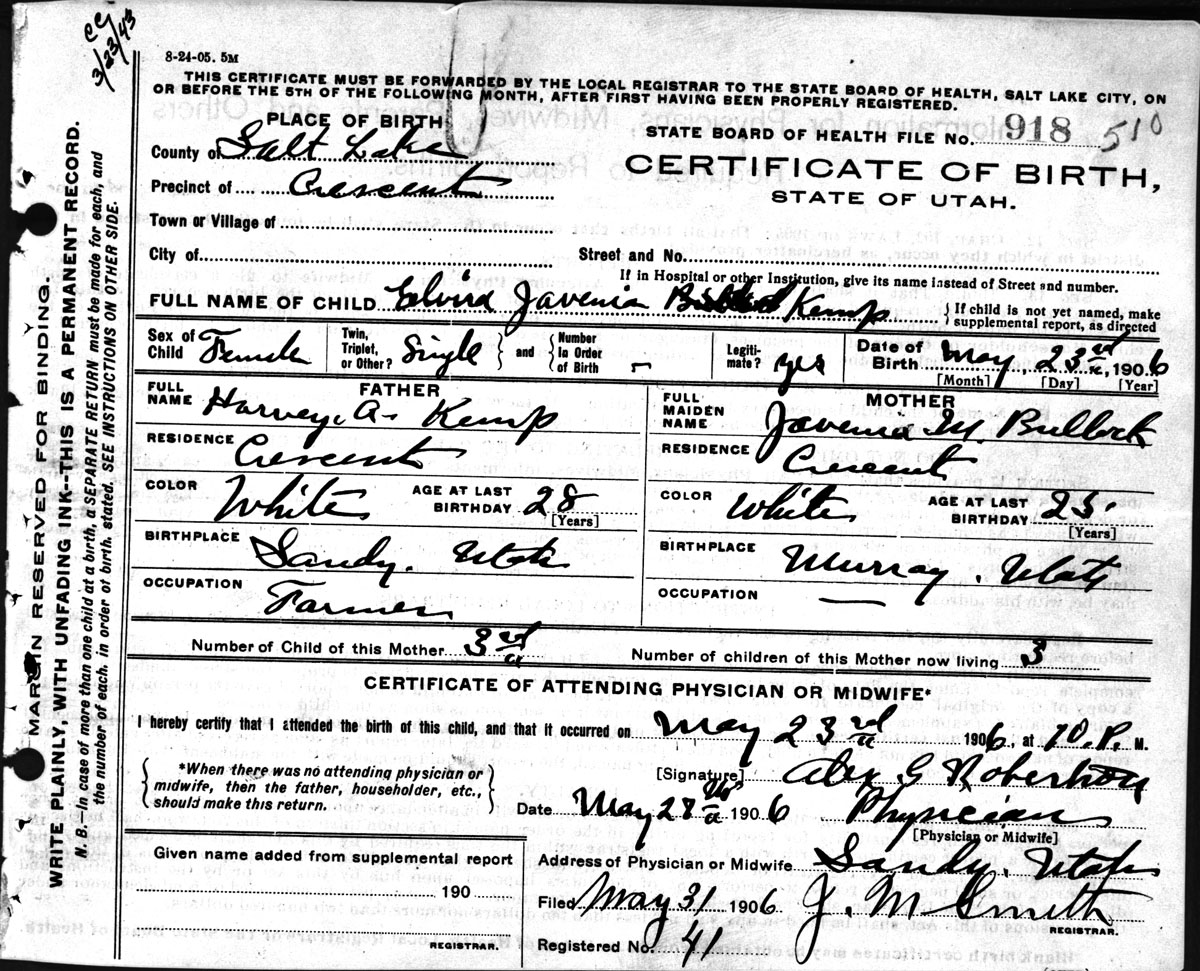 CC
3/23/43
8-24-05. 5M
THIS CERTIFICATE MUST BE FORWARDED BY THE LOCAL REGISTRAR TO THE STATE BOARD OF HEALTH, SALT LAKE CITY, ON
OR BEFORE THE 5TH OF THE FOLLOWING MONTH, AFTER FIRST HAVING BEEN PROPERLY REGISTERED.
PLACE OF BIRTH
STATE BOARD OF HEALTH FILE No. 918 510
County of Salt Lake
CERTIFICATE OF BIRTH,
Precinct of Crescent
STATE OF UTAH.
Town or Village of
City of Street and No.
If in Hospital or other Institution, give its name instead of Street and number.
FULL NAME OF CHILD Elvira Javenia Kemp { If child is not yet named, make supplemental report, as directed
Sex of Child Female Twin, Triplet, or Other? Single } and { Number in Order of Birth - Legiti- mate? yes Date of Birth May 23rd, 1906
[Month] [Day] [Year]
FATHER
FULL NAME Harvey. A. Kemp
MOTHER
FULL MAIDEN NAME Javenia M. Bullock
RESIDENCE Crescent
RESIDENCE Crescent
COLOR White AGE AT LAST BIRTHDAY 28 [Years]
COLOR White AGE AT LAST BIRTHDAY 25 [Years]
BIRTHPLACE Sandy. Utah
BIRTHPLACE Murray. Utah
OCCUPATION Farmer
OCCUPATION —
Number of Child of this Mother 3rd
Number of children of this Mother now living 3
CERTIFICATE OF ATTENDING PHYSICIAN OR MIDWIFE*
I hereby certify that I attended the birth of this child, and that it occurred on May 23rd 1906, at 10. P. M.
{ *When there was no attending physician or
midwife, then the father, householder, etc.,
should make this return. }
[Signature] Alex G Robertson
Date May 28th 1906 Physician
[Physician or Midwife]
Given name added from supplemental report
190
REGISTRAR.
Address of Physician or Midwife Sandy. Utah
Filed May 31 1906 J. M Smith
REGISTRAR.
Registered No. 41
MARGIN RESERVED FOR BINDING.
WRITE PLAINLY, WITH UNFADING INK--THIS IS A PERMANENT RECORD.
N. B. In case of more than one child at a birth, a SEPARATE RETURN must be made for each, and
the number of each, in order of birth, stated. SEE INSTRUCTIONS ON OTHER SIDE.